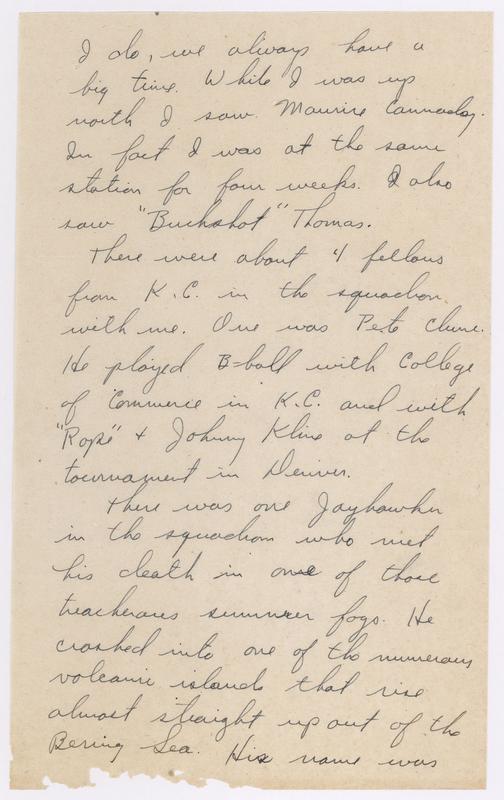 I do, we always have a
big time. While I was up
north I saw Maurice Cannaday.
In fact I was at the same
station for four weeks. I also
saw "Buckshot" Thomas.
There were about 4 fellows
from K.C. in the squadron
with me. One was Pete
He played B-ball with College
of Commerce in K.C. and with
"Rope" + Johnny Kline at the
tournament in Denver.
There was one Jayhawker
in the squadron who met
his death in one of those
treacherous summer fogs. He
crashed into one of the numerous
volcanic islands that rise
almost straight up out of the
Bering Sea. His name was